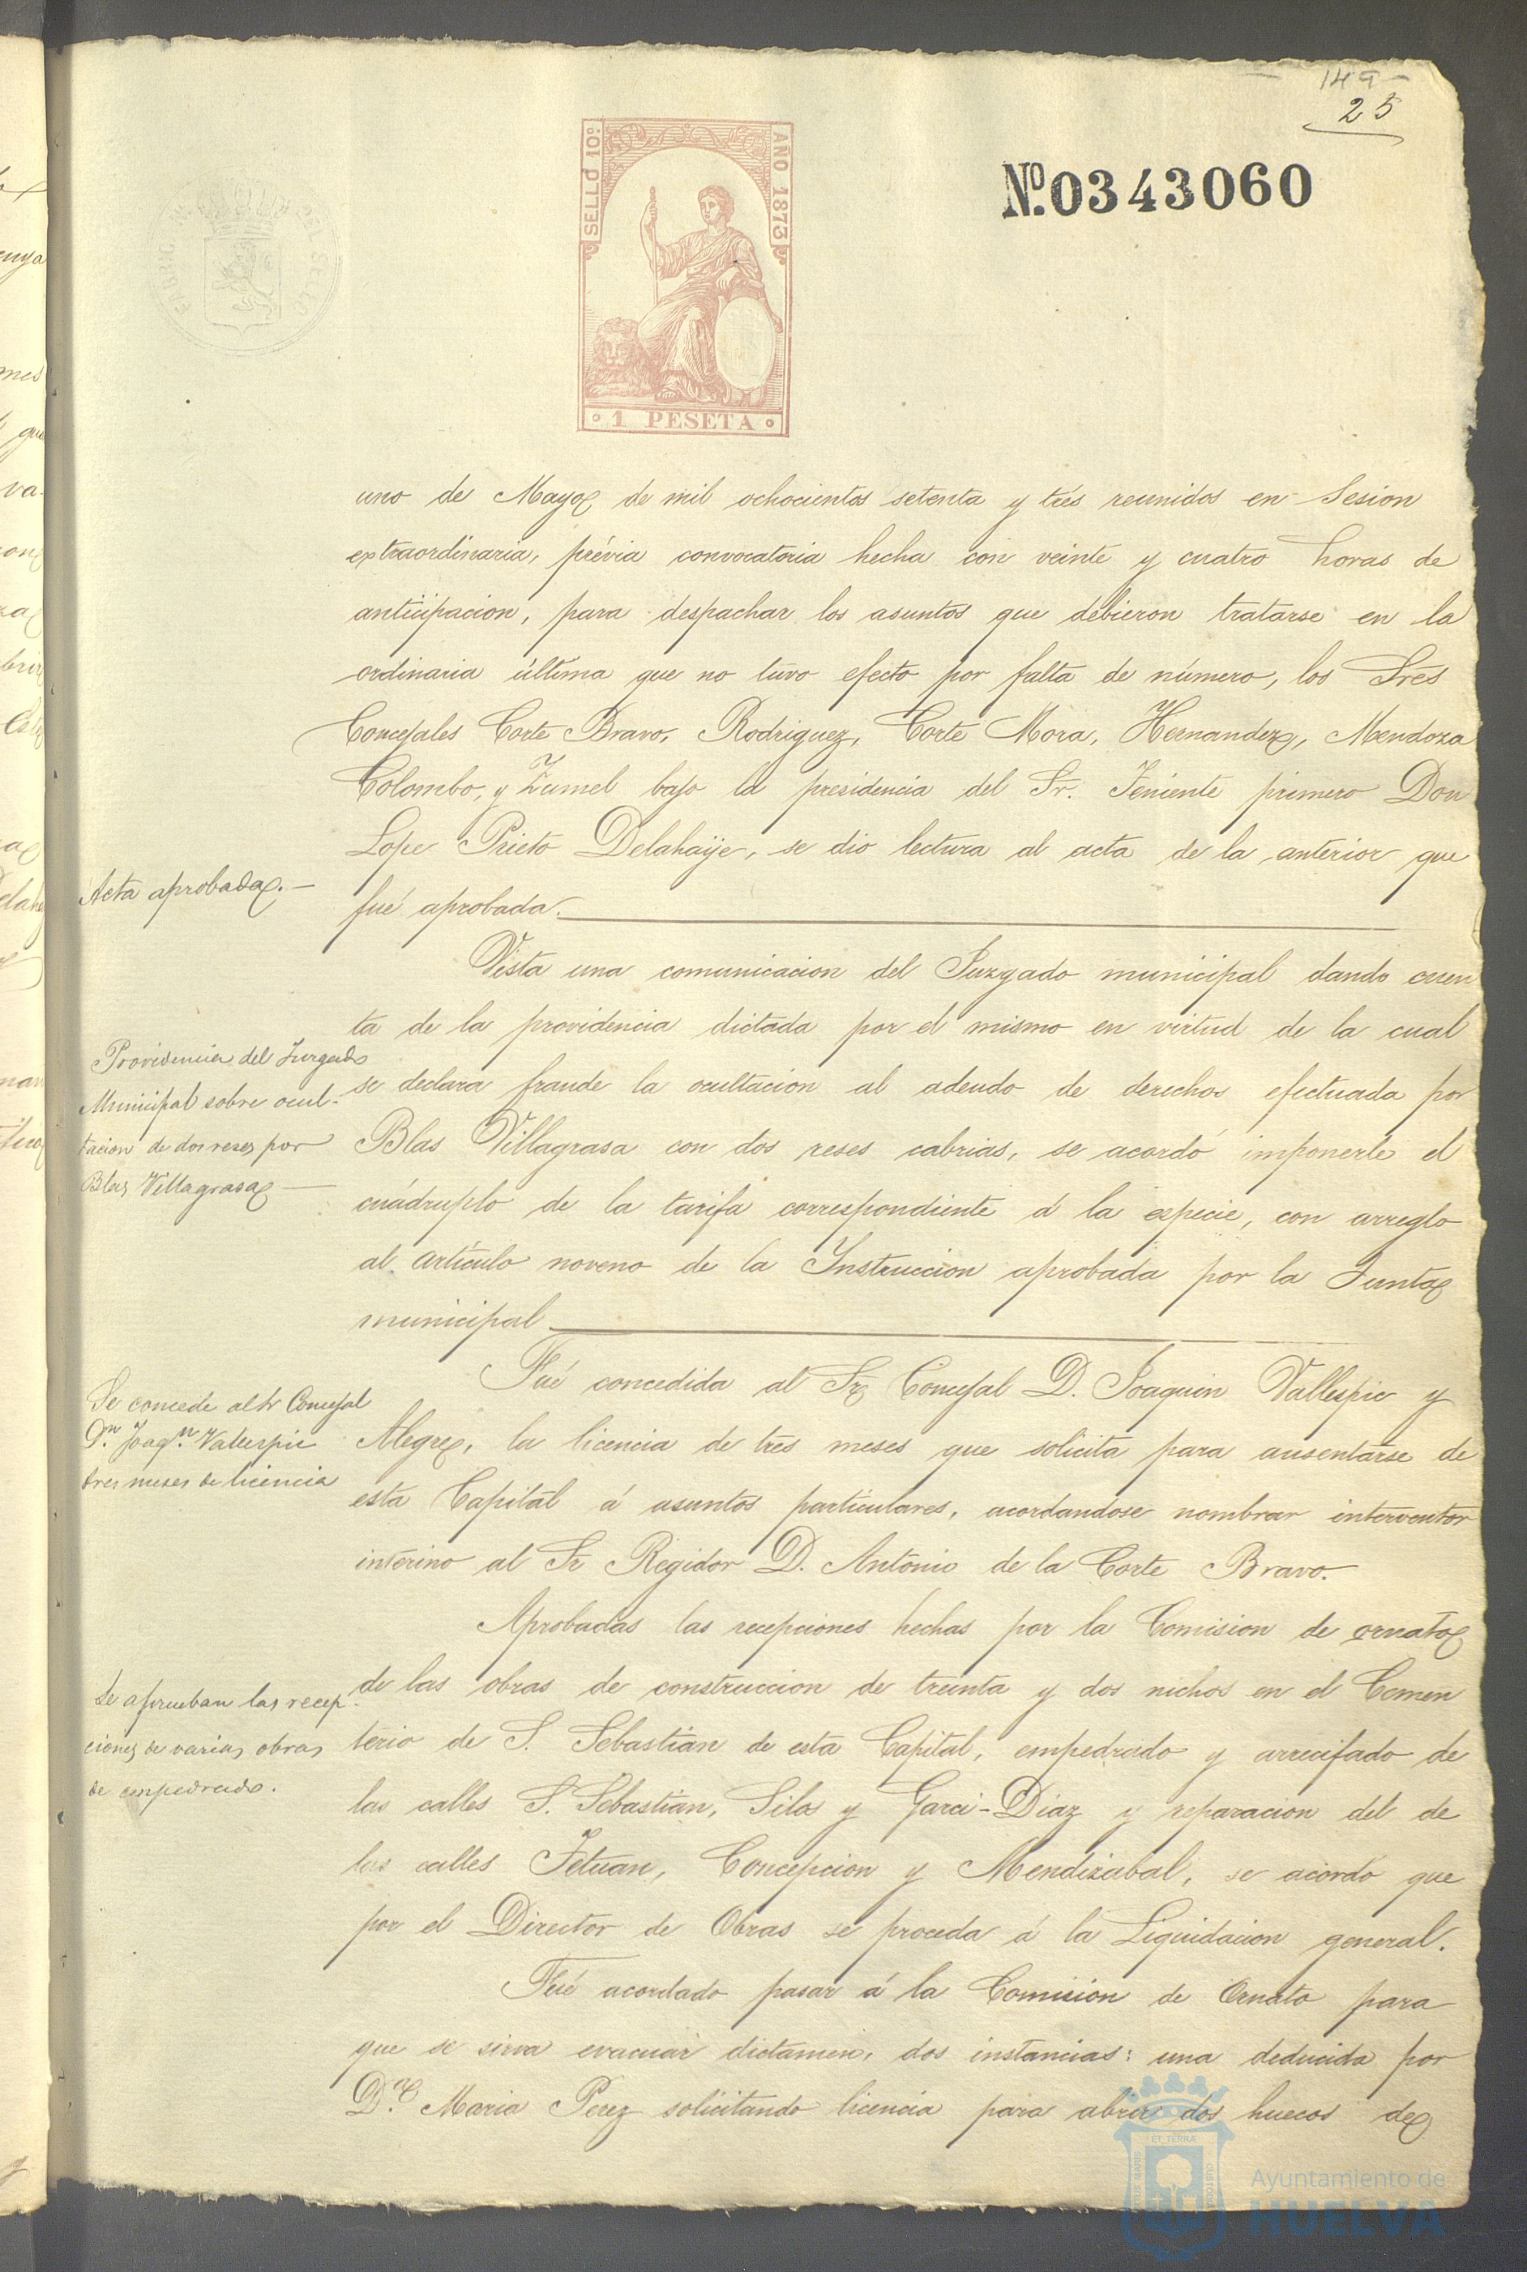 149
25
SELLO 10º
AÑO 1873
Nº 0343060
1 PESETA
uno de Mayo de mil ochocientos setenta y trés reunidos en Sesion
extraordinaria, prévia convocatoria hecha con veinte y cuatro horas de
anticipacion, para despachar los asuntos que debieron tratarse en la
ordinaria última que no tuvo efecto por falta de número, los Sres
Concejales Corte Bravo, Rodriguez, Corte Mora, Hernandez, Mendoza
Colombo, y Zumel bajo la presidencia del Sr. Teniente primero Don
Lope Prieto Delahaije, se dio lectura al acta de la anterior que
fué aprobada.
Acta aprobada.
Vista una comunicacion del Juzgado municipal dando cuen
ta de la providencia dictada por el mismo en virtud de la cual
se declara fraude la ocultacion al adeudo de derechos efectuada por
Blas Villagrasa con dos reses cabrias, se acordó imponerle el
cuádruplo de la tarifa correspondiente á la especie, con arreglo
al artículo noveno de la Instruccion aprobada por la Junta
municipal
Providencia del Juzgado
Municipal sobre ocul-
tacion de dos reses por
Blas Villagrasa
Fué concedida al Sr Concejal D. Joaquin Vallespin y
Alegre, la licencia de tres meses que solicita para ausentarse de
esta Capital á asuntos particulares, acordandose nombrar interventor
interino al Sr Regidor D. Antonio de la Corte Bravo.
Se concede al Sr Concejal
Dn. Joaqn. Vallespin
tres meses de licencia
Aprobadas las recepciones hechas por la Comision de ornato
de las obras de construccion de treinta y dos nichos en el Cemen
terio de S. Sebastián de esta Capital, empedrado y arrecifado de
las calles S. Sebastian, Silos y Garci-Diaz y reparacion del de
las calles Tetuan, Concepcion y Mendizabal, se acordó que
por el Director de Obras se proceda á la Liquidacion general.
Se aprueban las recep-
ciones de varias obras
de empedrado.
Fué acordado pasar á la Comision de Ornato para
que se sirva evacuar dictamen, dos instancias: una deducida por
D.ª Maria Perez solicitando licencia para abrir dos huecos de
Ayuntamiento de
HUELVA